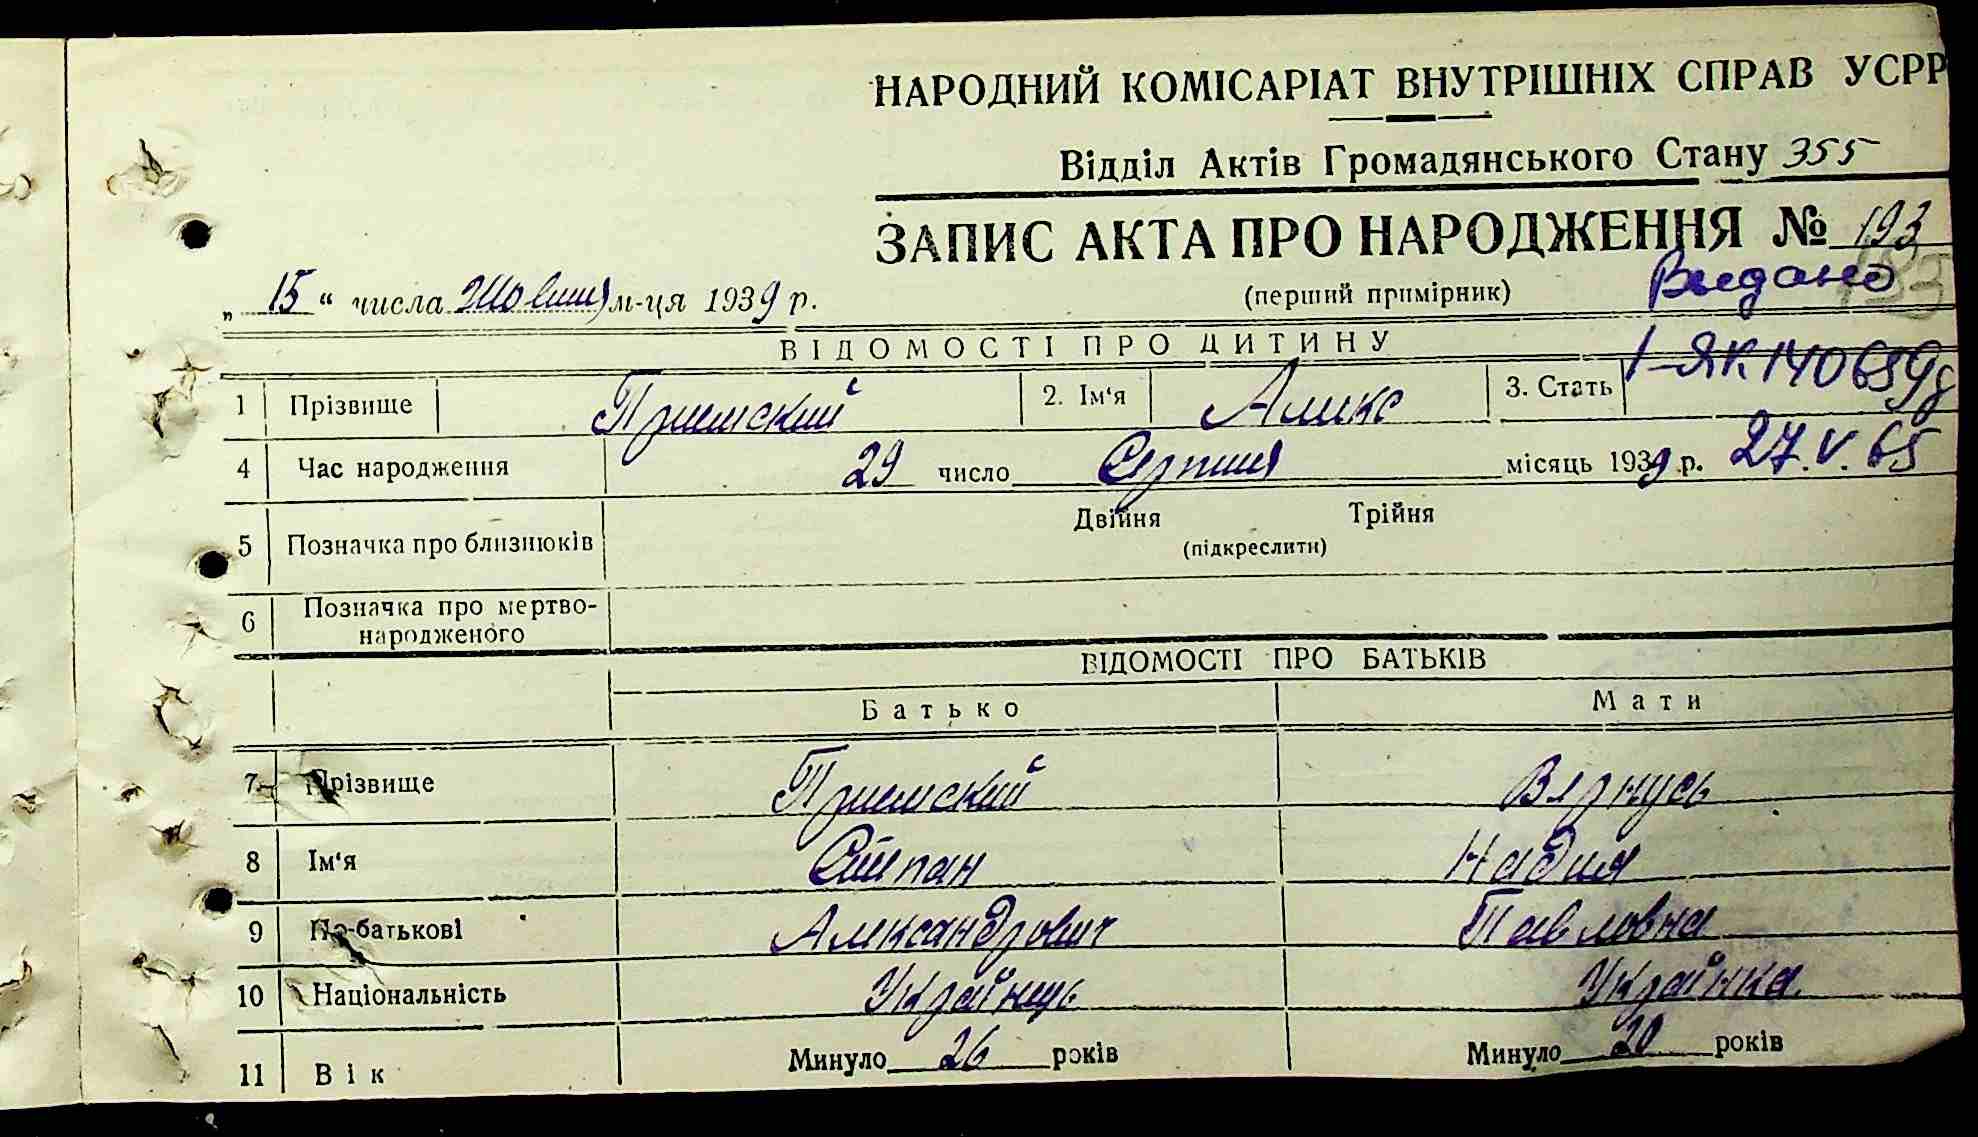 НАРОДНИЙ КОМІСАРІАТ ВНУТРІШНІХ СПРАВ УСРР
Відділ Актів Громадянського Стану 355
ЗАПИС АКТА ПРО НАРОДЖЕННЯ № 193
193
(перший примірник) Видано
„15“ числа Жовтня м-ця 1939 р.
ВІДОМОСТІ ПРО ДИТИНУ
1-ЯК 140659
1 Прізвище 2. Ім'я Аликс 3. Стать
4 Час народження 29 число Серпня місяць 1939 р. 27.V.65
5 Позначка про близнюків Двійня Трійня
(підкреслити)
6 Позначка про мертво-
народженого
ВІДОМОСТІ ПРО БАТЬКІВ
Батько Мати
7 Прізвище
8 Ім'я Степан Надия
9 По-батькові Александрович Павловна
10 Національність Українець Українка
11 Вік Минуло 26 років Минуло 20 років